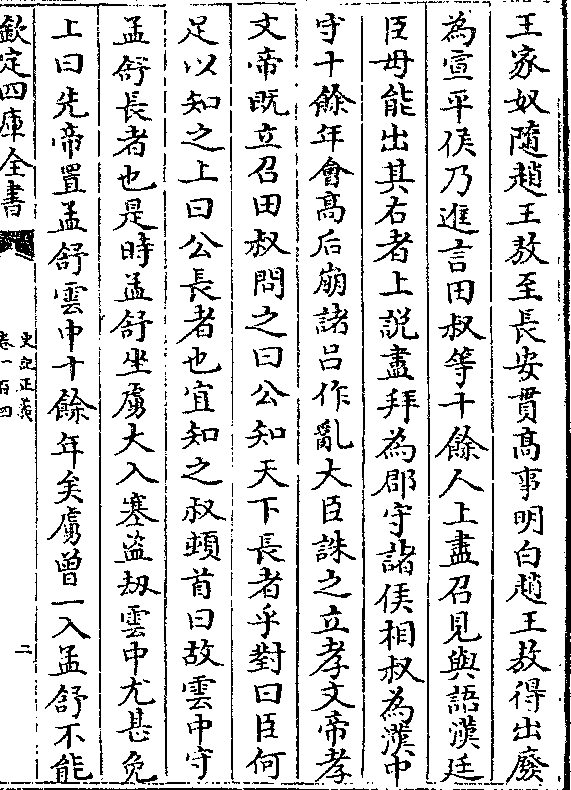 王家奴隨趙王敖至長安貫髙事明白趙王敖得出廢
為宣平侯乃進言田叔等十餘人上盡召見與語漢廷
臣毋能出其右者上說盡拜為郡守諸侯相叔為漢中
守十餘年會髙后崩諸吕作亂大臣誅之立孝文帝孝
文帝既立召田叔問之曰公知天下長者乎對曰臣何
足以知之上曰公長者也宜知之叔頓首曰故雲中守
孟舒長者也是時孟舒坐虜大入塞盗刼雲中尤甚免
上曰先帝置孟舒雲中十餘年矣虜曾一入孟舒不能
欽定四庫全書
史記正義
卷一百四
二